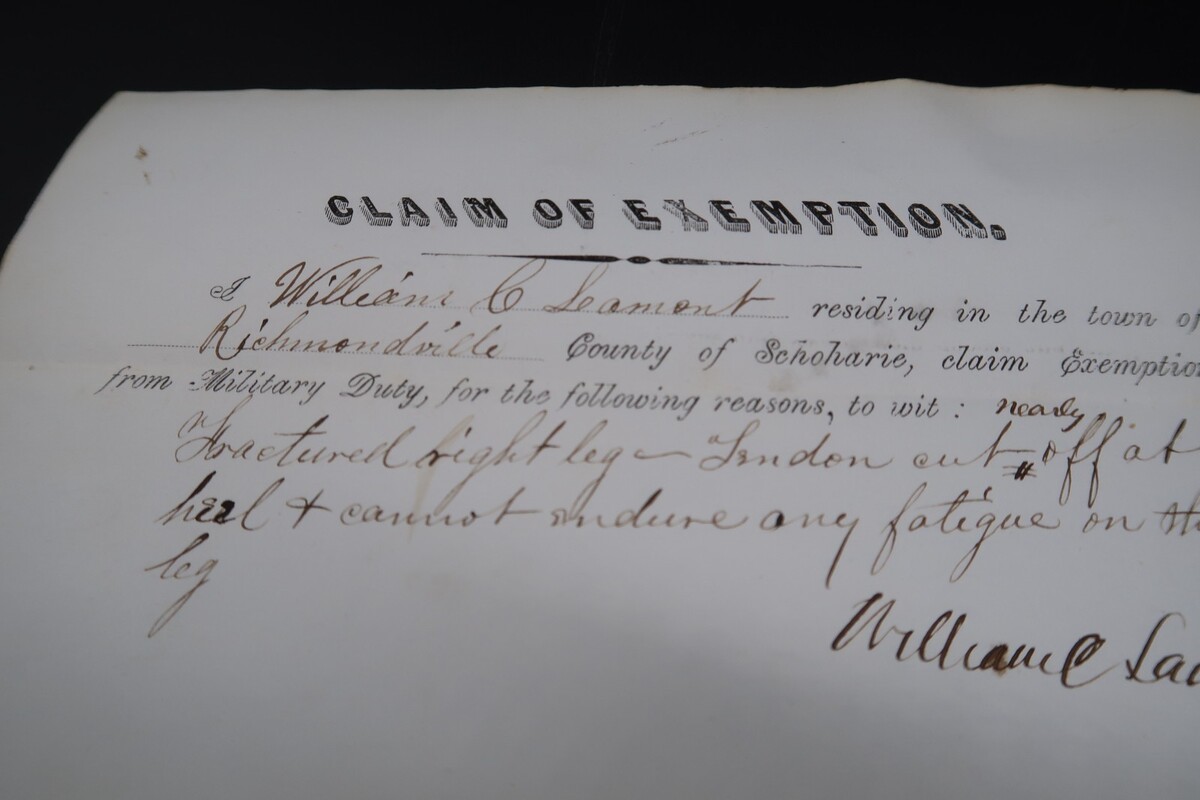 CLAIM OF EXEMPTION.
I William C Lamont residing in the town of
Richmondville County of Schoharie, claim Exemption
from Military Duty, for the following reasons, to wit : nearly
Fractured right leg — Tendon cut off at
heel & cannot endure any fatigue on
leg
William C